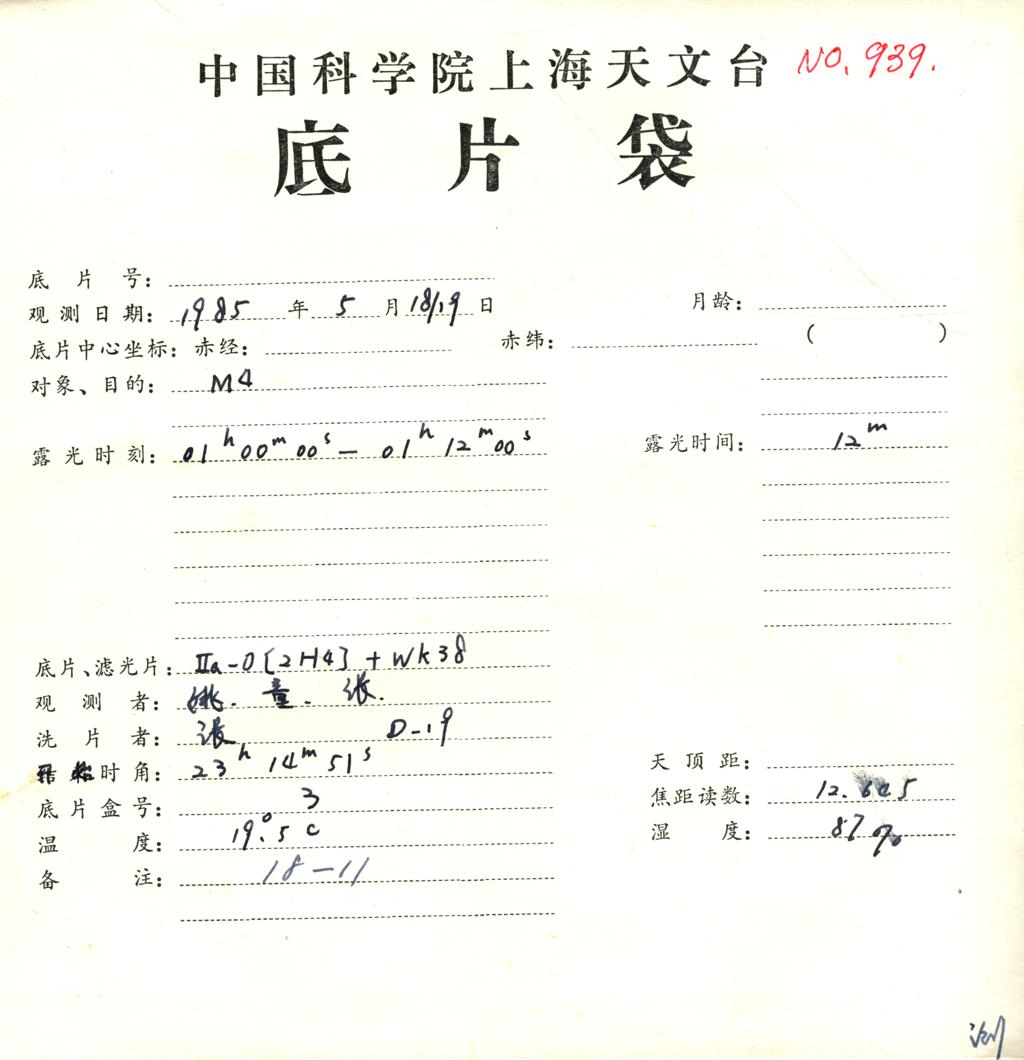 中国科学院上海天文台 NO. 939.
底片袋
底片号:
观测日期: 1985 年 5 月 18/19 日 月龄:
底片中心坐标: 赤经: 赤纬: ( )
对象、目的: M4
露光时刻: 01h 00m 00s — 01h 12m 00s 露光时间: 12m
底片、滤光片: IIa-O [2H4] + WK38
观测者: 姚. 童. 张.
洗片者: 张 D-19
时角: 23h 14m 51s 天顶距:
底片盒号: 3 焦距读数: 12.645
温度: 19°.5 C 湿度: 87%
备注: 18-11